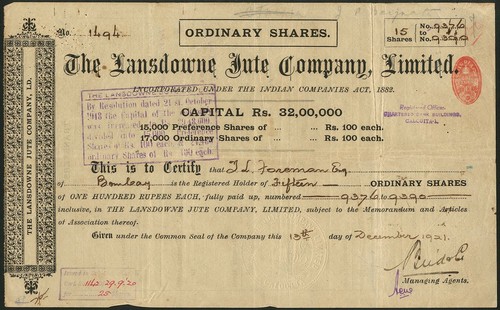 ORDINARY SHARES.
No. 1494
15 Shares
No. 9376 to 9390
The Lansdowne Jute Company, Limited.
INCORPORATED UNDER THE INDIAN COMPANIES ACT, 1882.
CAPITAL Rs. 32,00,000
15,000 Preference Shares of ... ... Rs. 100 each.
17,000 Ordinary Shares of ... ... Rs. 100 each.
Registered Office:
CHARTERED BANK BUILDINGS,
CALCUTTA-1.
THE LANSDOWNE
By Resolution dated 21st October
the Capital of the
was increased
divided into
Shares of Rs. 100 each
ordinary Shares of Rs. 100 each.
This is to Certify that Foreman Esq
of Bombay is the Registered Holder of Fifteen ORDINARY SHARES
of ONE HUNDRED RUPEES EACH, fully paid up, numbered 9376 to 9390
inclusive, in THE LANSDOWNE JUTE COMPANY, LIMITED, subject to the Memorandum and Articles
of Association thereof.
Given under the Common Seal of the Company this 13th day of December 1921.
Managing Agents.
1142 29.9.20
25
THE LANSDOWNE JUTE COMPANY, LD.